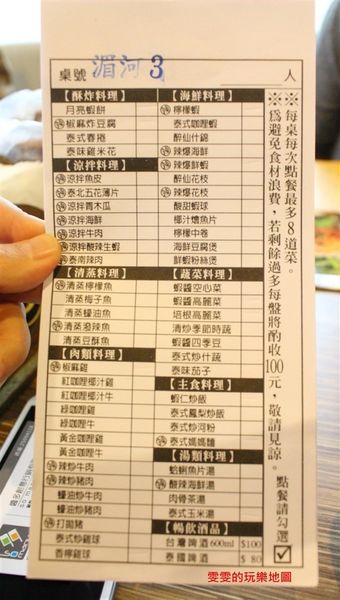 桌號 湄河 3 人
【酥炸料理】
月亮蝦餅
椒麻炸豆腐
泰式春捲
泰味雞米花
【涼拌料理】
涼拌魚皮
泰北五花薄片
涼拌青木瓜
涼拌海鮮
涼拌牛肉
涼拌酸辣生蝦
泰南辣肉
【清蒸料理】
清蒸檸檬魚
清蒸梅子魚
清蒸蠔油魚
清蒸潑辣魚
清蒸豆酥魚
【肉類料理】
椒麻雞
紅咖哩椰汁雞
紅咖哩椰汁牛
綠咖哩雞
綠咖哩牛
黃金咖哩雞
黃金咖哩牛
辣炒牛肉
辣炒豬肉
蠔油炒牛肉
蠔油炒豬肉
打拋豬
泰式炒雞球
香檸雞球
【海鮮料理】
檸檬蝦
泰式咖哩蝦
醉仙什錦
辣爆海鮮
辣爆鮮蝦
醉仙花枝
辣爆花枝
酸甜蝦球
椰汁燴魚片
檸檬中卷
海鮮豆腐煲
鮮蝦粉絲煲
【蔬菜料理】
蝦醬空心菜
蝦醬高麗菜
培根高麗菜
清炒季節時蔬
蝦醬四季豆
泰式炒什蔬
泰味茄子
【主食料理】
蝦仁炒飯
泰式鳳梨炒飯
泰式炒河粉
泰式媽媽麵
【湯類料理】
蛤蜊魚片湯
酸辣海鮮湯
肉骨茶湯
泰式玉米湯
【暢飲酒品】
台灣啤酒 600ml $100
泰國啤酒 $ 80
※每桌每次點餐最多8道菜。
※為避免食材浪費，若剩餘過多每盤將酌收100元，敬請見諒。 點餐請勾選☑
雯雯的玩樂地圖